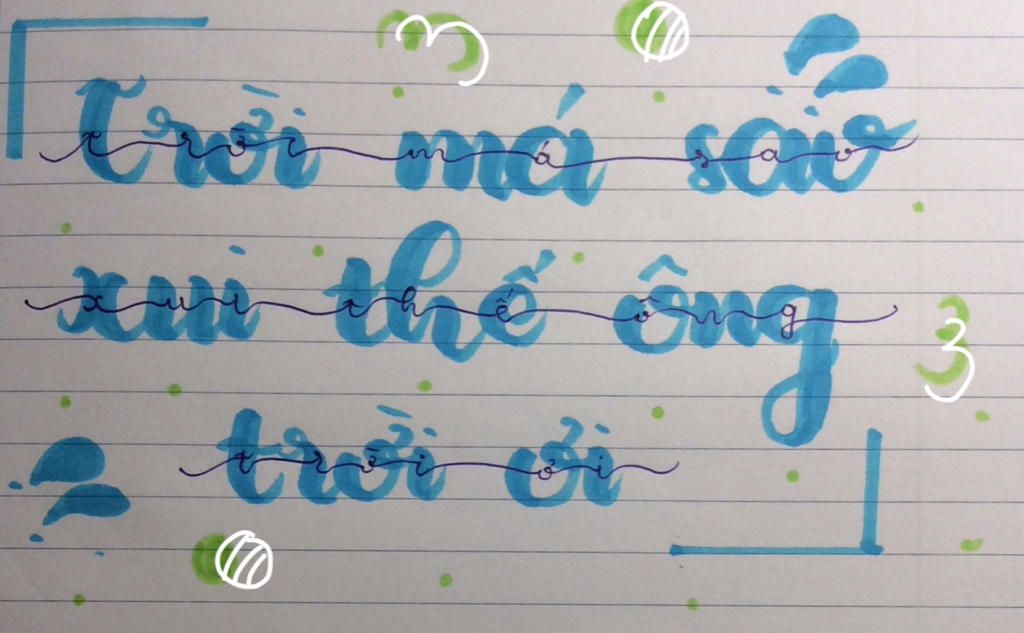 trời má sao
xui thế ông
trời ơi